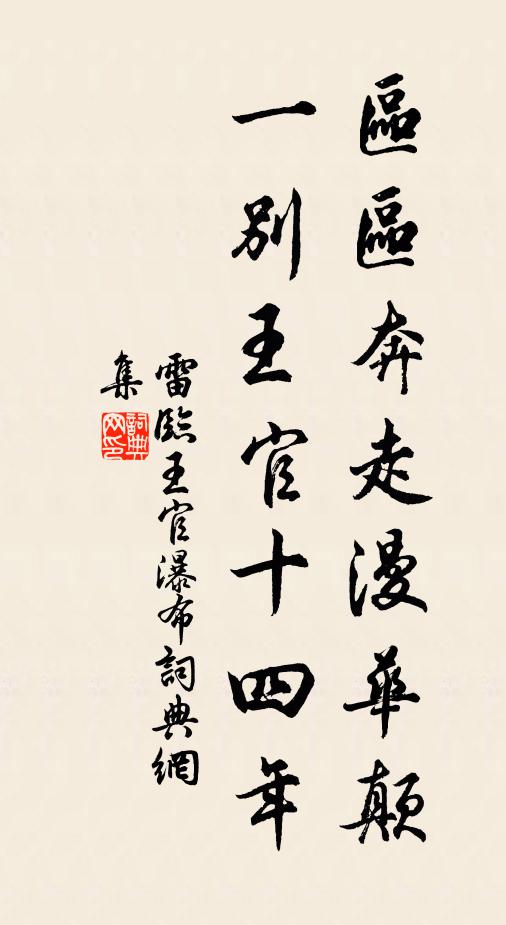 區區奔走漫華顛
一別王官十四年
雷臨王官瀑布詞典網
集
詞典
网印